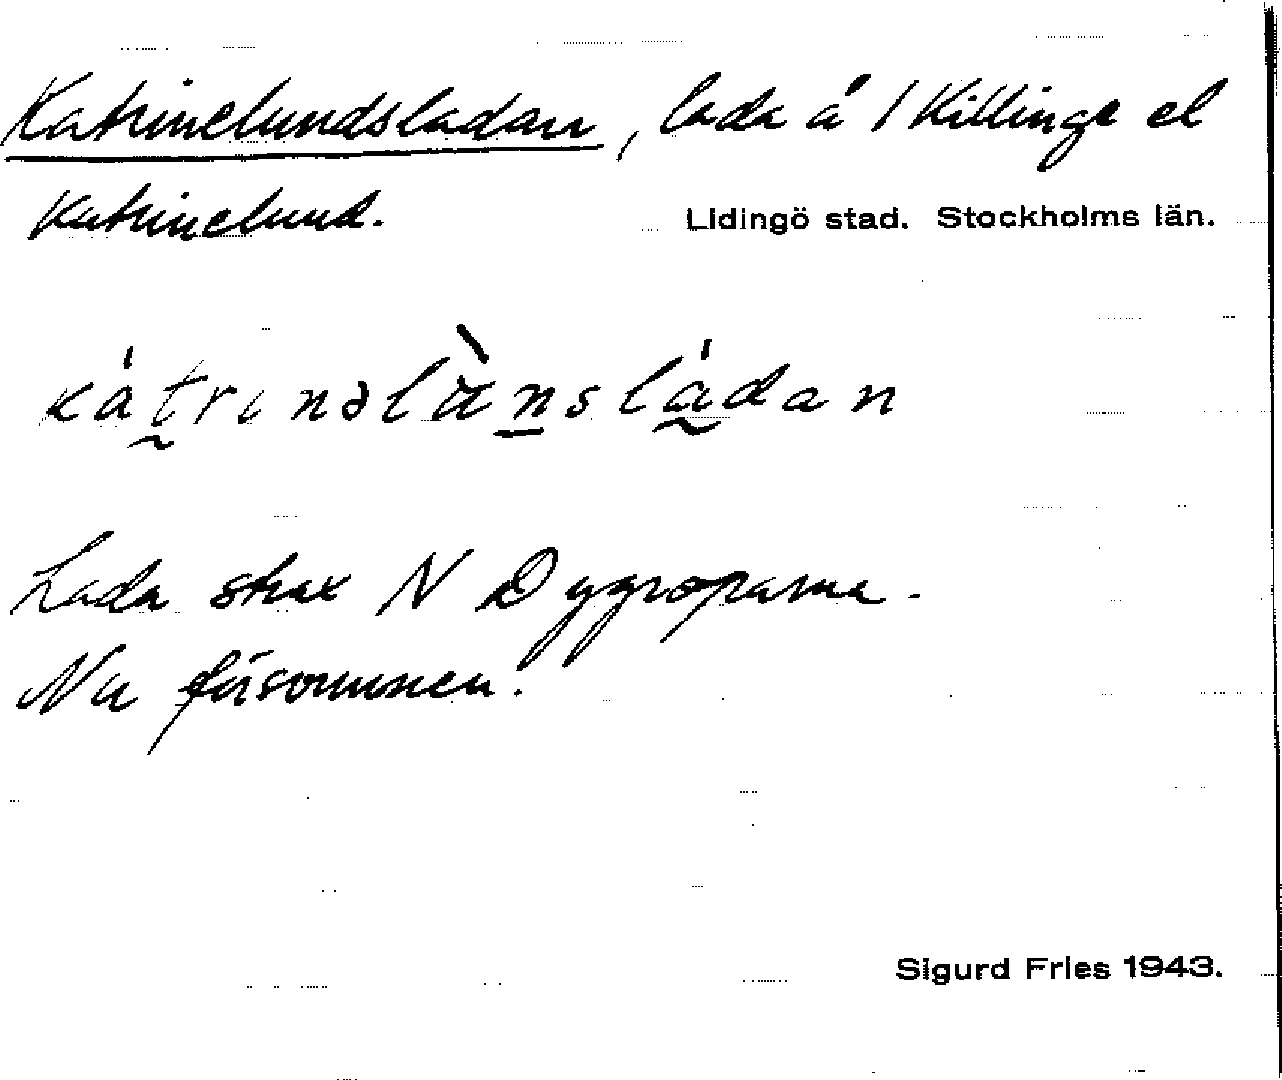 Katrinelundsladan, lada å 1 Killinge el
Katrinelund.
Lidingö stad. Stockholms län.
kátrinəlùnsládan
Lada strax N Dyggroparna.
Nu försvunnen.
Sigurd Fries 1943.